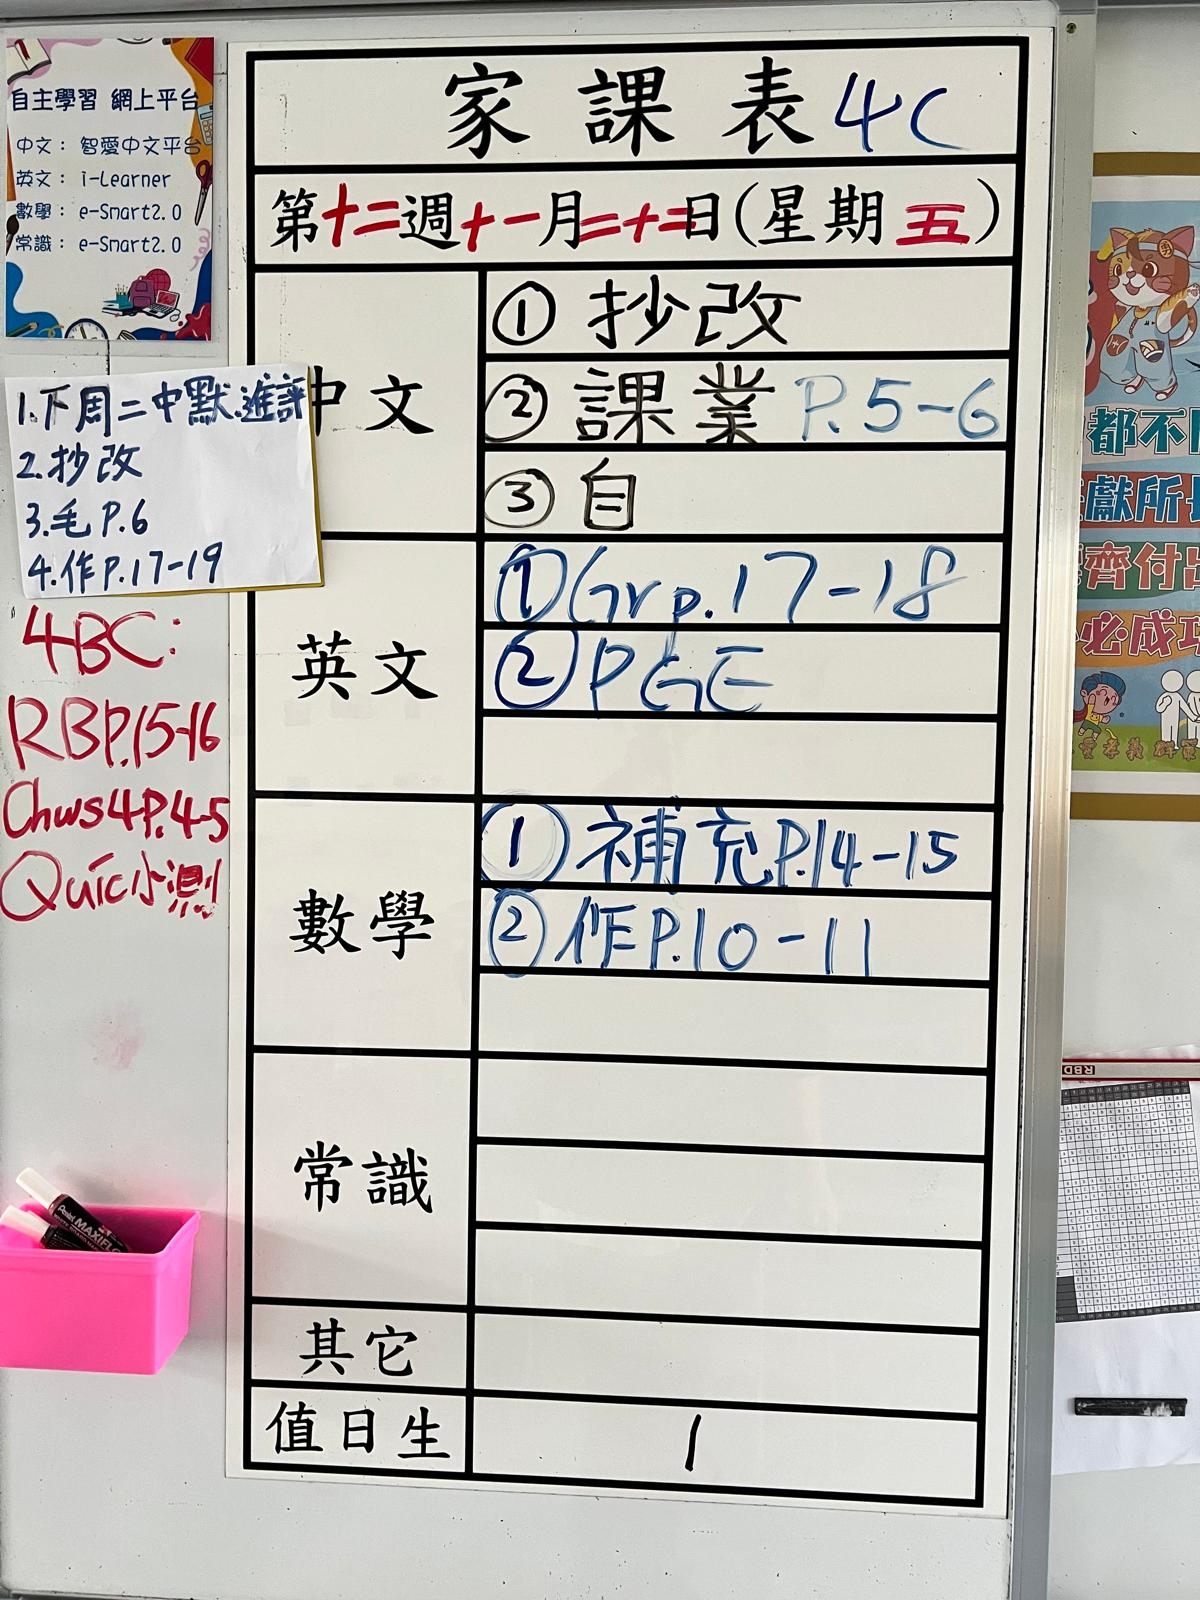 自主學習 網上平台
中文： 智愛中文平台
英文： i-Learner
數學： e-Smart2.0
常識： e-Smart2.0
1.下周二中默.進評
2.抄改
3.毛P.6
4.作P.17-19
4BC:
RBP.15-16
Chws4P.4-5
Quic小測
家課表 4C
第十二週十一月二十二日(星期五)
中文
① 抄改
② 課業 P.5-6
③ 自
英文
① Grp.17-18
② PGE
數學
① 補充P.14-15
② 作P.10-11
常識
其它
值日生
1
都不
獻所
齊付出
必成功
RBD
Pentel MAXIFLO